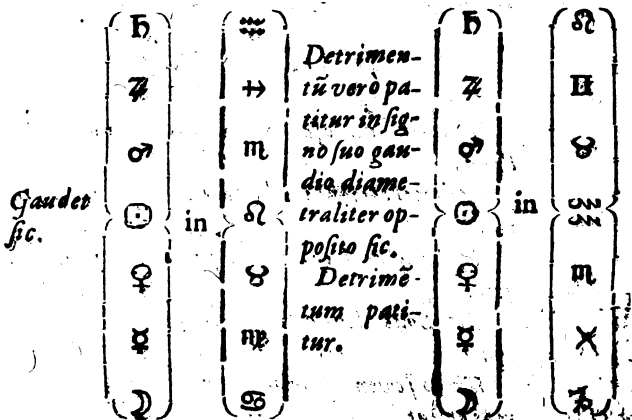 Gaudet
ſic.
♄
♃
♂
☉
♀
☿
☽
in
♒
♐
♏
♌
♉
♍
♋
Detrimen-
tũ verò pa-
titur in ſig-
no ſuo gau-
dio diame-
traliter op-
poſito ſic.
Detrimẽ-
tum pati-
tur.
♄
♃
♂
☉
♀
☿
☽
in
♌
♊
♉
♒
♏
♓
♑